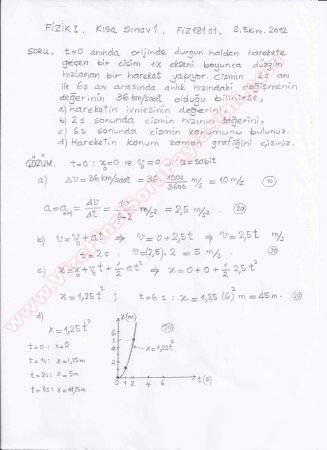 FİZİK I. KISA SINAVI FİZ12101. 8.Ekim.2012
SORU. t=0 anında orijinde durgun halden harekete
geçen bir cisim +x ekseni boyunca düzgün
hızlanan bir hareket yapıyor. Cismin 2s anı
ile 6s anı arasında anlık hızındaki değişmenin
değerinin 36 km/saat olduğu bilinitese,
a) hareketin ivmesinin değerini,
b) 2 s sonunda cismin hızının değerini,
c) 6 s sonunda cismin konumunu bulunuz.
d) Hareketin konum zaman grafiğini çiziniz.
ÇÖZÜM. t=0 : x₀=0 ve v₀=0 ; a=sabit
a) Δv = 36 km/saat = 36 1000/3600 m/s = 10 m/s (10)
a = a_ort = Δv/Δt = 10/(6-2) m/s² = 2,5 m/s². (20)
b) v = v₀ + at ⇒ v = 0 + 2,5t ⇒ v = 2,5t m/s
t=2s : v = (2,5). 2 = 5 m/s.
c) x = x₀ + v₀t + 1/2 at² ⇒ x = 0 + 0 + 1/2 2,5t²
x = 1,25t² ; t=6s : x = 1,25 (6)² = 45m. (20)
d)
x = 1,25t²
t=0 : x=0
t=1s: x=1,25m
t=2s: x=5m
x(m)
x=1,25t²
1 2 4 6
t(s)